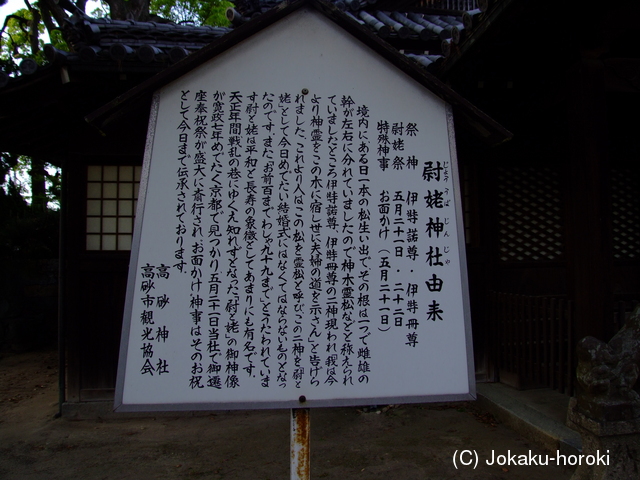 尉姥神社由来
じょううばじんじゃ
祭神　伊特諾尊・伊特冊尊
尉姥祭　五月二十一日・二十二日
特殊神事　お面かけ（五月二十一日）
境内にある日一本の松生い出で、その根は一つで雌雄の
幹が左右に分れていましたので神木霊松などと称えられ
ていましたところ伊特諾尊、伊特冊尊の二神現われ、我は今
より神霊をこの木に宿し世に夫婦の道を示さんと告げら
れました。これより人はこの松を霊松と呼びこの二神を「尉と
姥」として今日めでたい結婚式にはなくてはならないものとなっ
たのです。また、「お前百までわしゃ九十九まで」とうたわれていま
す尉と姥は平和と長寿の象徴としてあまりにも有名です。
天正年間戦乱の巷にゆくえ知れずとなった「尉と姥」の御神像
が寛政七年めでたく京都で見つかり五月二十一日当社で御遷
座奉祝祭が盛大に斎行され、お面かけ神事はそのお祝
として今日まで伝承されております。
高砂神社
高砂市観光協会
(C) Jokaku-horoki